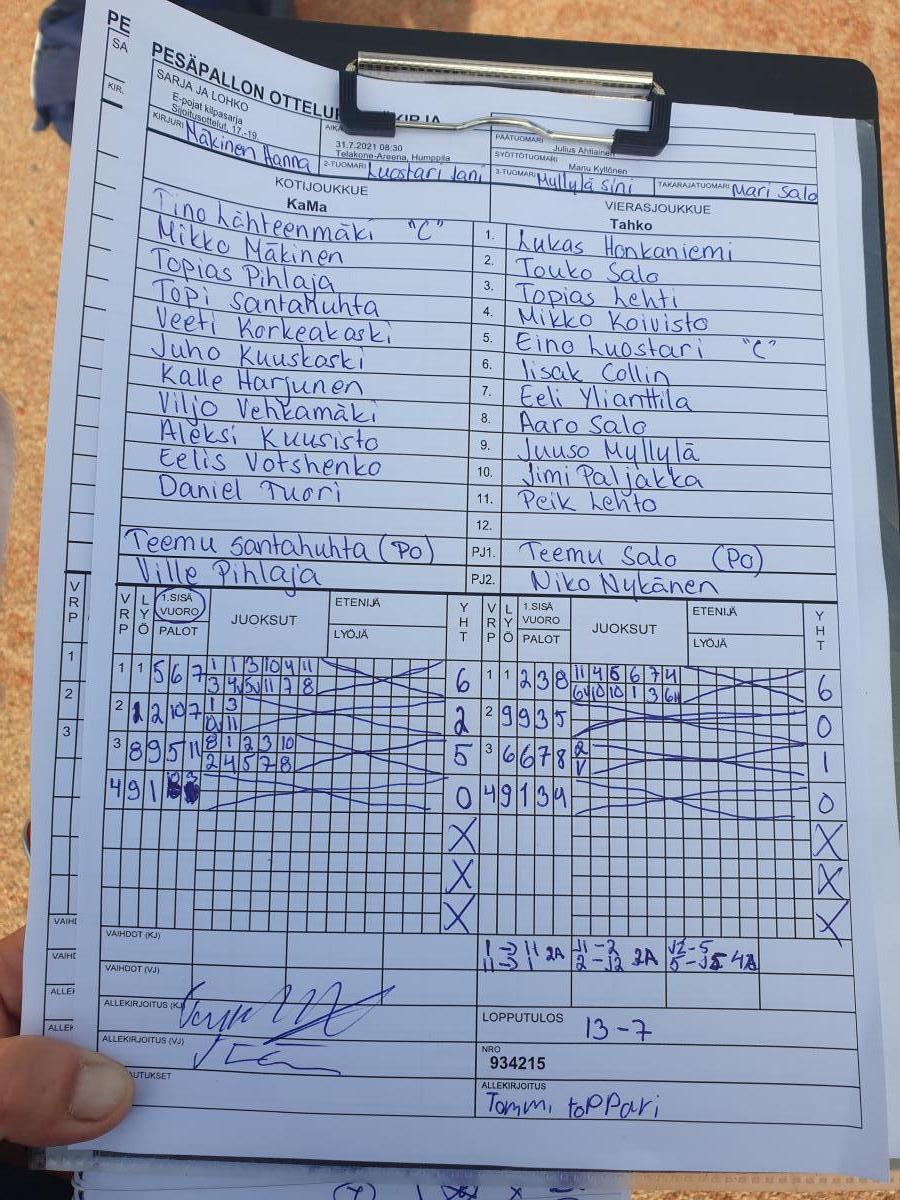 PE
SA
KIR.
PESÄPALLON OTTELU
KIRJA
SARJA JA LOHKO
E-pojat kilpasarja
Sijoitusottelut, 17.-19.
KIRJURI Mäkinen Hanna
AIKA
31.7.2021 08:30
Telakone-Areena, Humppila
2-TUOMARI Luostari Jani
PÄÄTUOMARI Julius Ahtiainen
SYÖTTÖTUOMARI Manu Kyllönen
3-TUOMARI Myllylä Sini
TAKARAJATUOMARI Mari Salo
KOTIJOUKKUE
KaMa
VIERASJOUKKUE
Tahko
Tino Lähteenmäki "C" 1. Lukas Honkaniemi
Mikko Mäkinen 2. Touko Salo
Topias Pihlaja 3. Topias Lehti
Topi Santahuhta 4. Mikko Koivisto
Veeti Korkeakoski 5. Eino Luostari "C"
Juho Kuuskoski 6. Iisak Collin
Kalle Harjunen 7. Eeli Ylianttila
Viljo Vehkamäki 8. Aaro Salo
Aleksi Kuusisto 9. Juuso Myllylä
Eelis Votshenko 10. Jimi Paljakka
Daniel Tuori 11. Peik Lehto
12.
Teemu Santahuhta (PO) PJ1. Teemu Salo (PO)
Ville Pihlaja PJ2. Niko Nykänen
VRP LYÖ 1.SISÄ VUORO PALOT JUOKSUT ETENIJÄ LYÖJÄ YHT VRP LYÖ 1.SISÄ VUORO PALOT JUOKSUT ETENIJÄ LYÖJÄ YHT
1 1 5 6 7 1 1 3 10 4 11 6 1 1 2 3 8 11 4 5 6 7 4 6
2 2 10 7 1 3 2 2 9 9 3 5 0
3 8 9 5 11 8 1 2 3 10 5 3 6 6 7 8 2 1
2 4 5 7 8 V
4 9 1 0 4 9 1 3 4 0
X X
X X
X X
VAIHDOT (KJ) 1 → 11 2A 11 - 2 2A 12 - 5
VAIHDOT (VJ)
ALLEKIRJOITUS (KJ)
LOPPUTULOS 13-7
ALLEKIRJOITUS (VJ)
NRO
934215
UTUKSET
ALLEKIRJOITUS
Tommi toppari
VRP
1
2
3
VAIHD
VAIHD
ALLEK
ALLEK